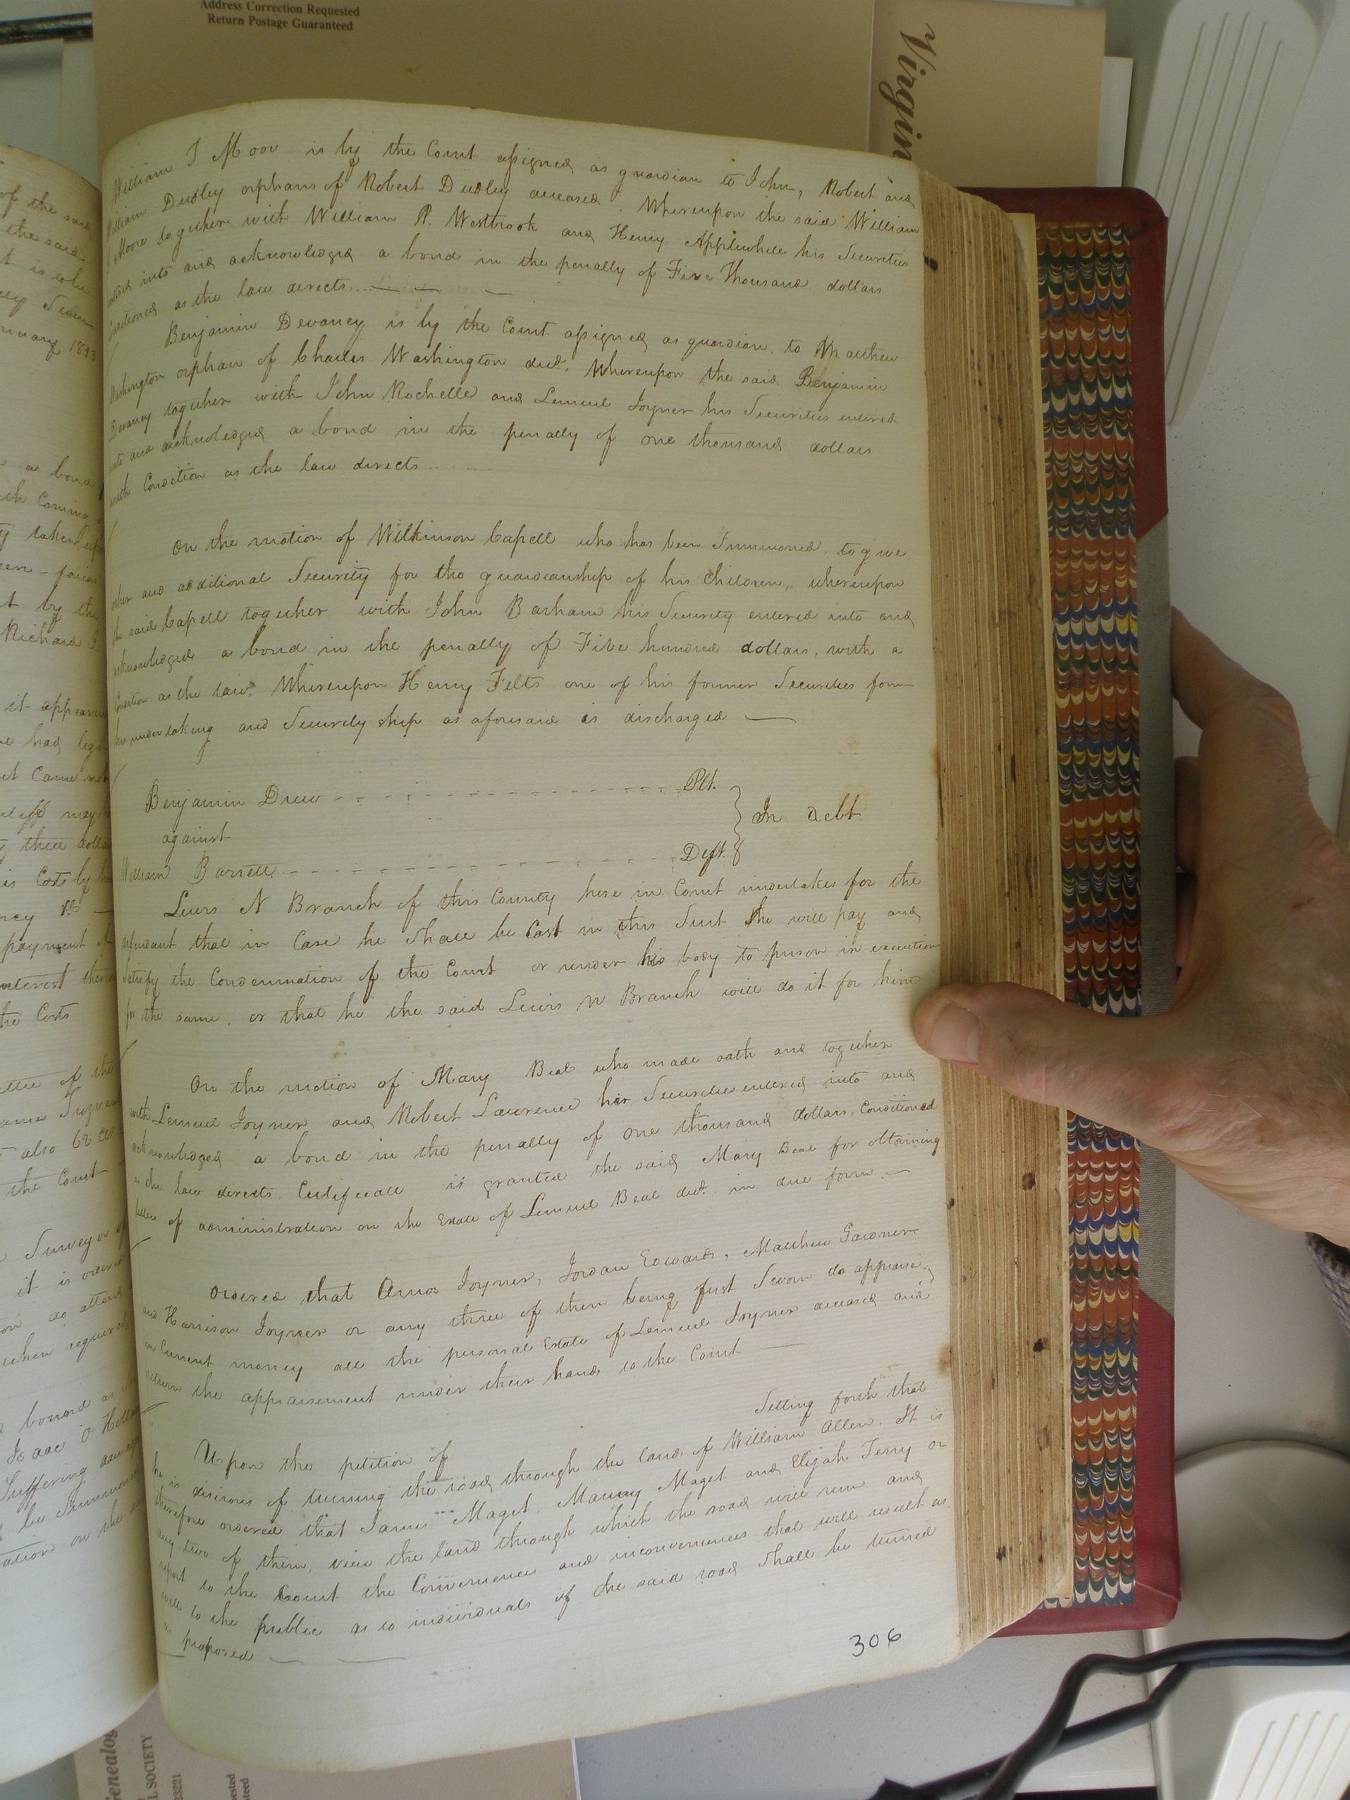 Address Correction Requested
Return Postage Guaranteed
Virgin
William J Moore is by the Court assigned as guardian to John, Robert and
William Dudley orphans of Robert Dudley deceased. Whereupon the said William
J Moore together with William P. Westbrook and Henry Applewhite his Securities
entered into and acknowledged a bond in the penalty of Five Thousand dollars
Conditioned as the law directs
Benjamin Devaney is by the Court assigned as guardian to Matthew
Washington orphan of Charles Washington decd. Whereupon the said Benjamin
Devaney together with John Rochelle and Lemuel Joyner his Securities entered
into and acknowledged a bond in the penalty of one thousand dollars
with Condition as the law directs
On the motion of Wilkinson Capell who has been Summoned to give
other and additional Security for the guardianship of his Children, whereupon
the said Capell together with John Barham his Security entered into and
acknowledged a bond in the penalty of Five hundred dollars, with a
Condition as the law. Whereupon Henry Felts one of his former Securities from
his undertaking and Security ship as aforesaid is discharged
Benjamin Drew Plt.
against
In debt
William Barrett Deft.
Lewis N Branch of this County here in Court undertakes for the
defendant that in Case he Shall be Cast in this Suit he will pay and
Satisfy the Condemnation of the Court or render his body to prison in execution
for the same, or that he the said Lewis N Branch will do it for him
On the motion of Mary Beal who made oath and together
with Lemuel Joyner and Robert Lawrence her Securities entered into and
acknowledged a bond in the penalty of one thousand dollars, Conditioned
as the law directs Certificate is granted the said Mary Beal for obtaining
letters of administration on the Estate of Lemuel Beal decd. in due form
Ordered that Amos Joyner, Jordan Edwards, Matthew Gardner
and Harrison Joyner or any three of them being first Sworn do appraise
in Current money all the personal Estate of Lemuel Joyner deceased and
return the appraisement under their hands to the Court
Upon the petition of Setting forth that
he is desirous of turning the road through the land of William Allen. It is
therefore ordered that James Maget, Maget and Elijah Terry or
any two of them, view the land through which the road will run and
report to the Court the Conveniences and inconveniences that will result as
well to the public as to individuals if the said road Shall be turned
as proposed
306
Genealog
L SOCIETY
23221